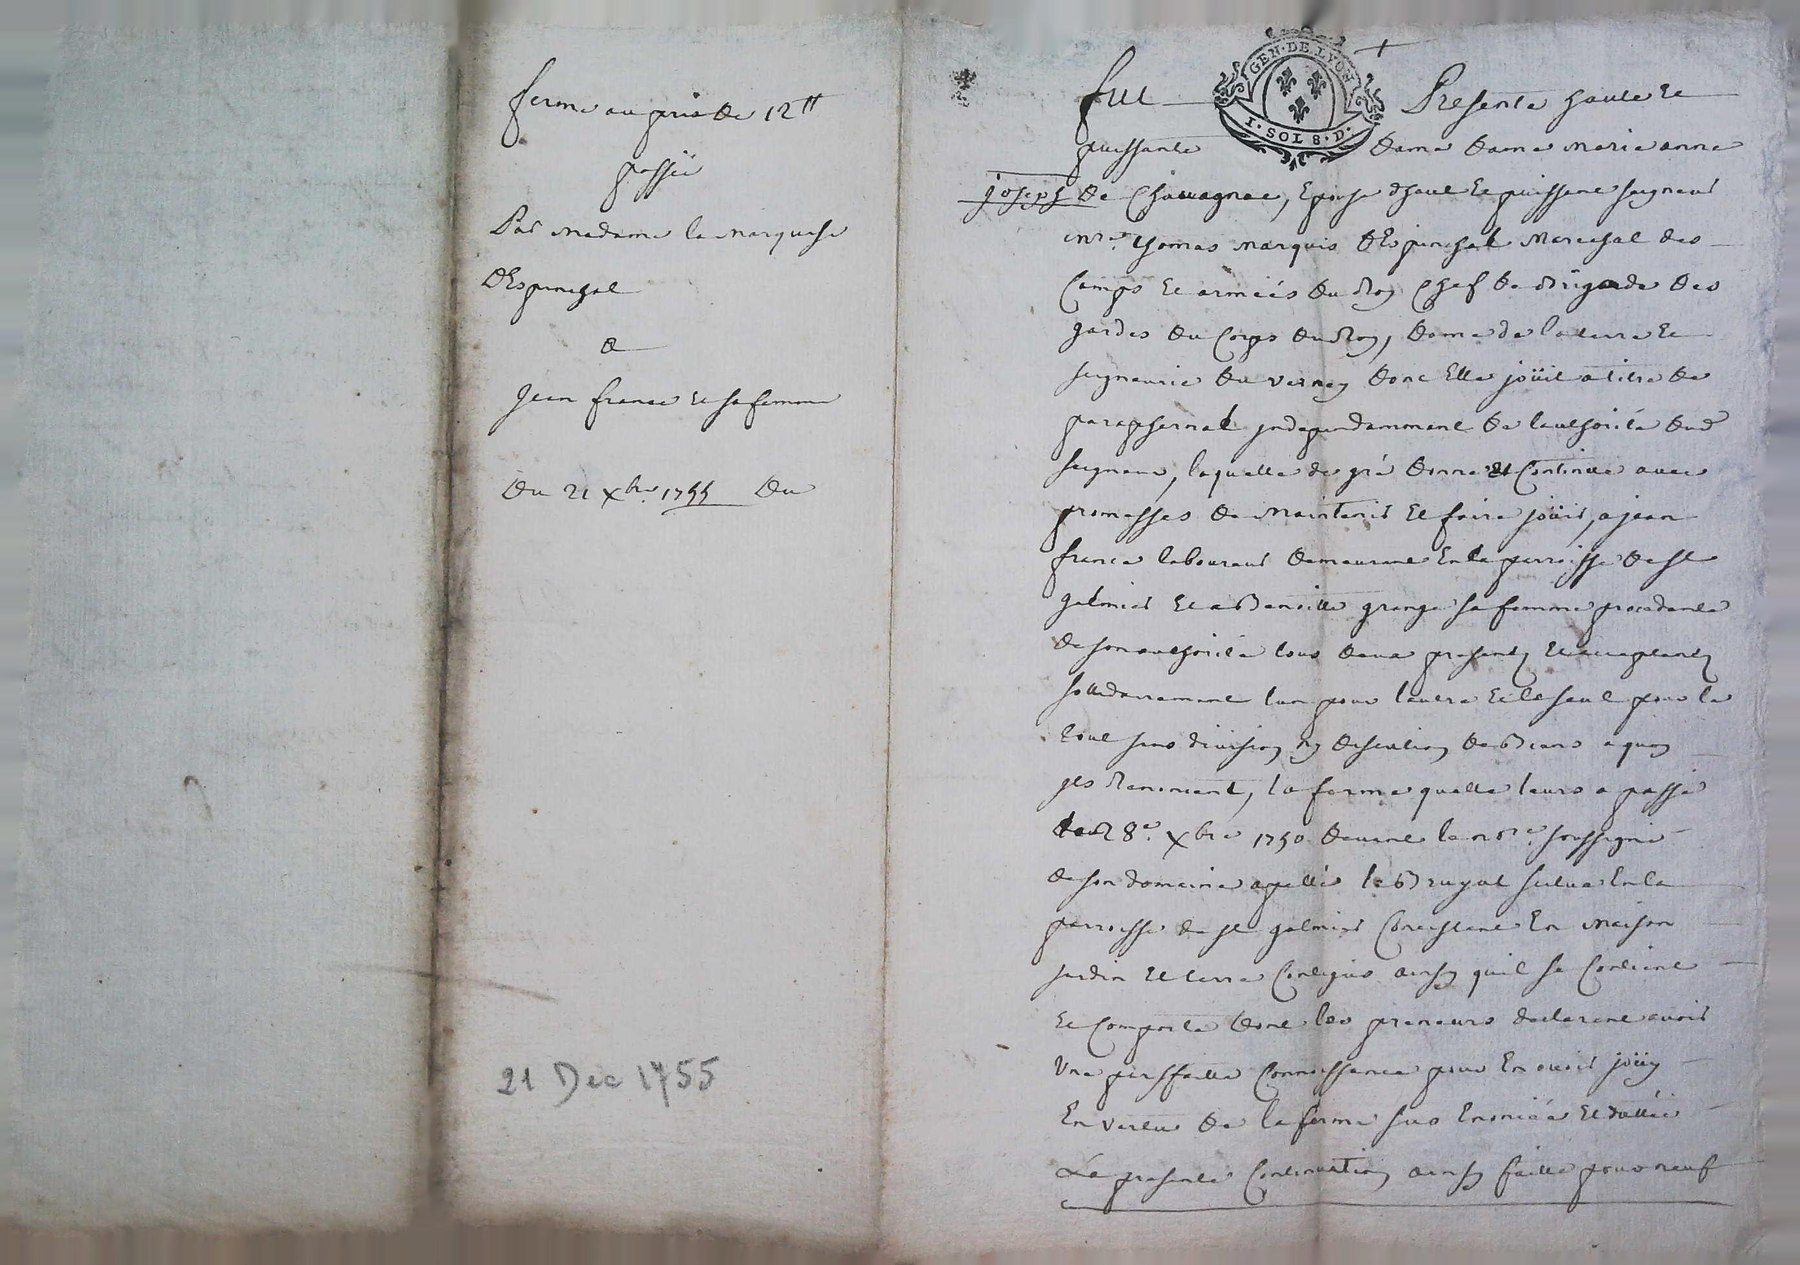 ferme au prix de 12tt
passée
Par Madame la Marquise
D'Espinchal
a
Jean france et sa femme
Du 21 xbre 1755 Du
21 Dec 1755
GEN·DE LYON
1·SOL 8·D·
fut Presente haute et
puissante dame dame marie anne
joseph de Chavagnac, Epouse d'haut et puissant seigneur
mre. thomas marquis d'Espinchal marechal des
Camps et armées du Roy Chef de Brigade des
gardes du Corps du Roy, dame de la terre et
seigneurie du verney dont Elle joüit a titre de
paraphernal jndependamment de l'authorité dud
seigneur, laquelle de gré donne et Continue avec
promesses de maintenir et faire joüir, a jean
france laboureur demeurant En la parroisse de st
galmier et a Benoitte grange sa femme procedante
de son authorité tous deux presents et acceptants
sollidairement l'un pour l'autre et le seul pour le
tout sans division ny discution de Biens a quoy
jls Renoncent, la ferme quelle leurs a passé
le 28e. xbre 1750 devant le nore. soussigné
de son domaine apellé le Bruyat scitué En la
parroisse de st galmier Consistant En maison
jardin et terre Contigus ainsy quil se Contient
et Comporte dont les preneurs declarent avoir
Une parfaitte Connoissance pour En avoir joüy
En vertu de la ferme sus Enoncée et dattée
La presente Continuation ainsy faitte pour neuf